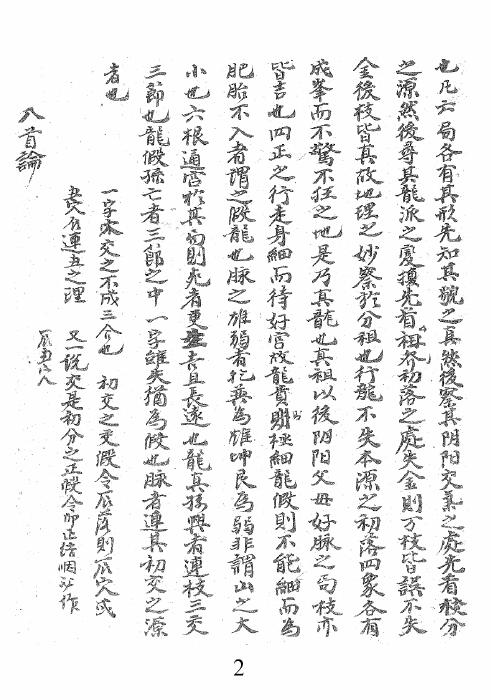 也凡六局各有其形先知其號之真然後察其阴阳交氣之處先看枝分
之源然後尋其龍派之處須先看祖宗初落之處失金則万枝皆誤不失
金後枝皆真故地理之妙察於分祖也行龍不失本源之初落四象各有
成峯而不驚不狂之地是乃真龍也真祖以後阴阳父母好脉之旬枝亦
皆吉也四正之行走身細而待好宮故龍貴則極細龍假則不能細而為
肥胎不入者謂之假龍也脉之雄弱者乾巽為雄坤艮為弱非謂山之大
小也六根通宮於其旬則先者更去且長遠也龍真孫興者連枝三交
三節也龍假孫亡者三節之中一字雖失猶為假也脉者連其初交之源
者也
八首論
一字不交之不成三介也 初交之交假令辰落則辰穴或
連五之理 又說交是初分之正假令卯正結
辰 穴